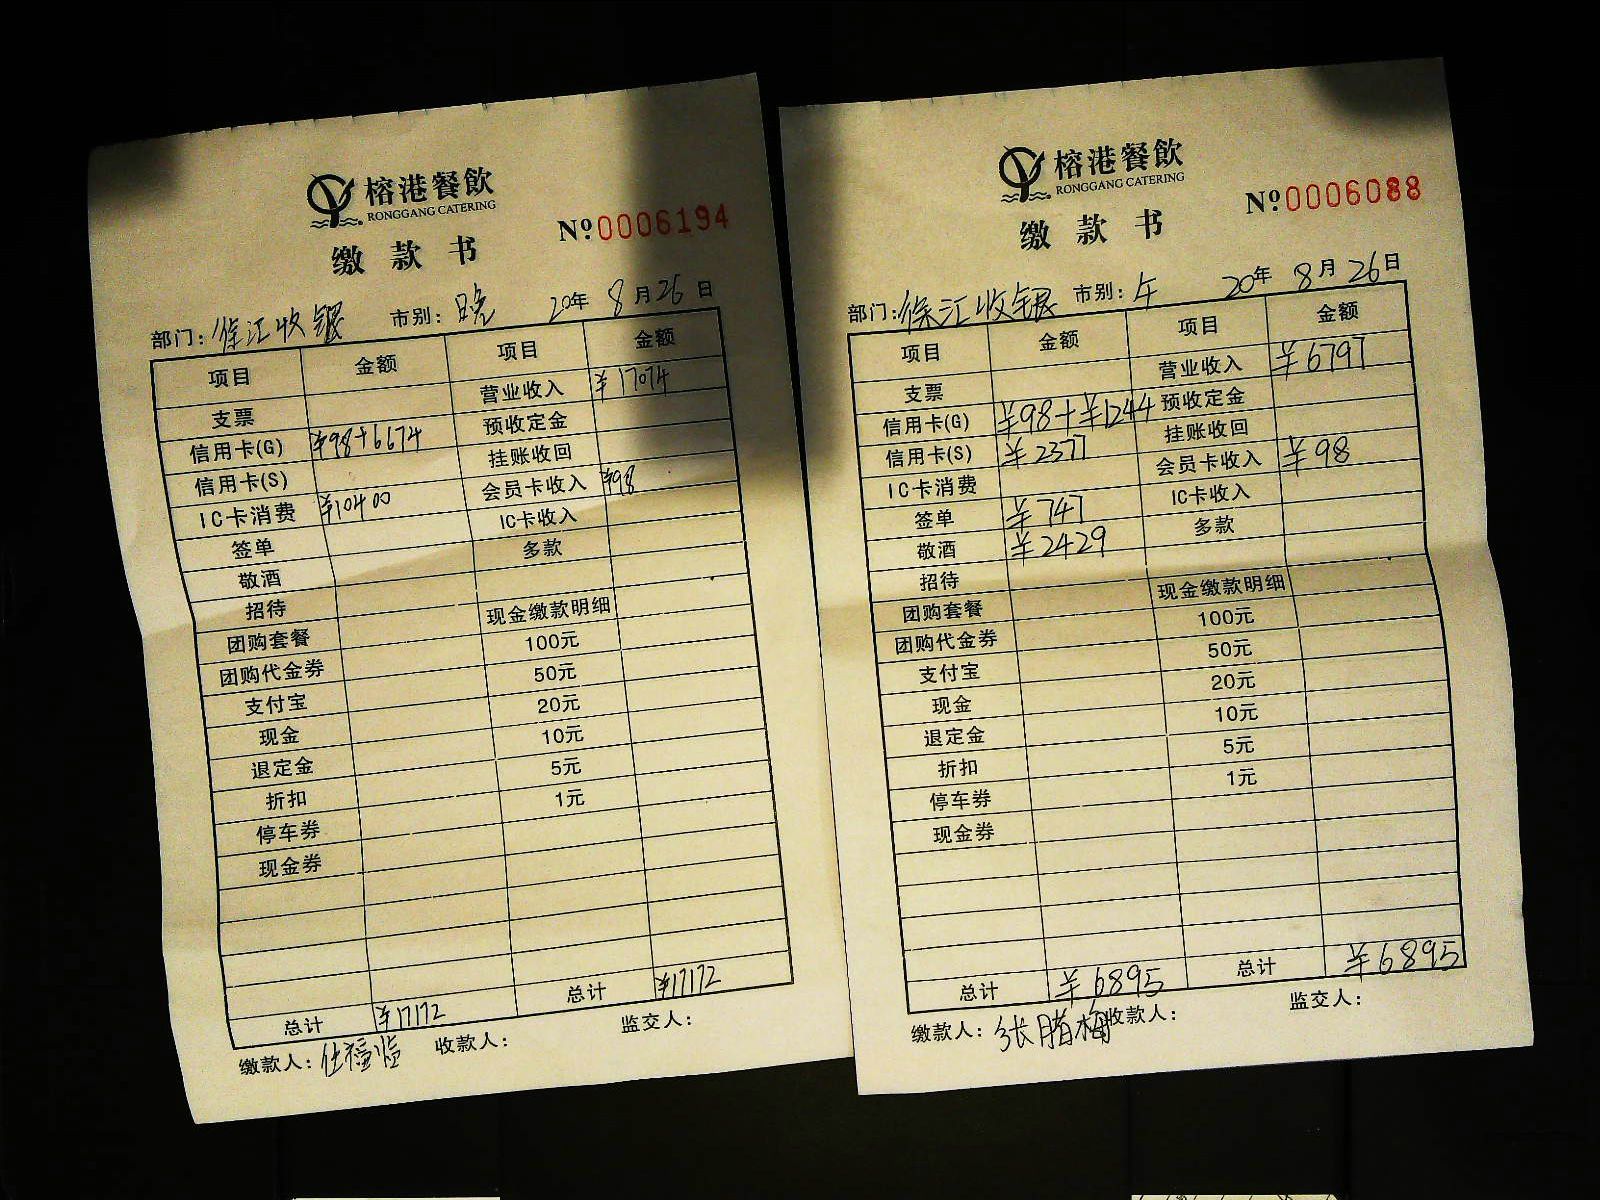 榕港餐飲
RONGGANG CATERING
缴款书
№0006194
部门: 徐汇收银 市别: 晚 20年 8月26日
项目 金额 项目 金额
支票 营业收入 ¥17074
信用卡(G) ¥98+6674 预收定金
信用卡(S) 挂账收回
IC卡消费 ¥10400 会员卡收入 ¥98
签单 IC卡收入
敬酒 多款
招待
团购套餐 现金缴款明细
团购代金券 100元
支付宝 50元
现金 20元
退定金 10元
折扣 5元
停车券 1元
现金券
总计 ¥17172 总计 ¥17172
缴款人: 收款人: 监交人:
榕港餐飲
RONGGANG CATERING
缴款书
№0006088
部门: 徐汇收银 市别: 午 20年 8月26日
项目 金额 项目 金额
支票 营业收入 ¥6797
信用卡(G) ¥98+¥1244 预收定金
信用卡(S) ¥2377 挂账收回
IC卡消费 会员卡收入 ¥98
签单 ¥747 IC卡收入
敬酒 ¥2429 多款
招待
团购套餐 现金缴款明细
团购代金券 100元
支付宝 50元
现金 20元
退定金 10元
折扣 5元
停车券 1元
现金券
总计 ¥6895 总计 ¥6895
缴款人: 张腊梅 收款人: 监交人: